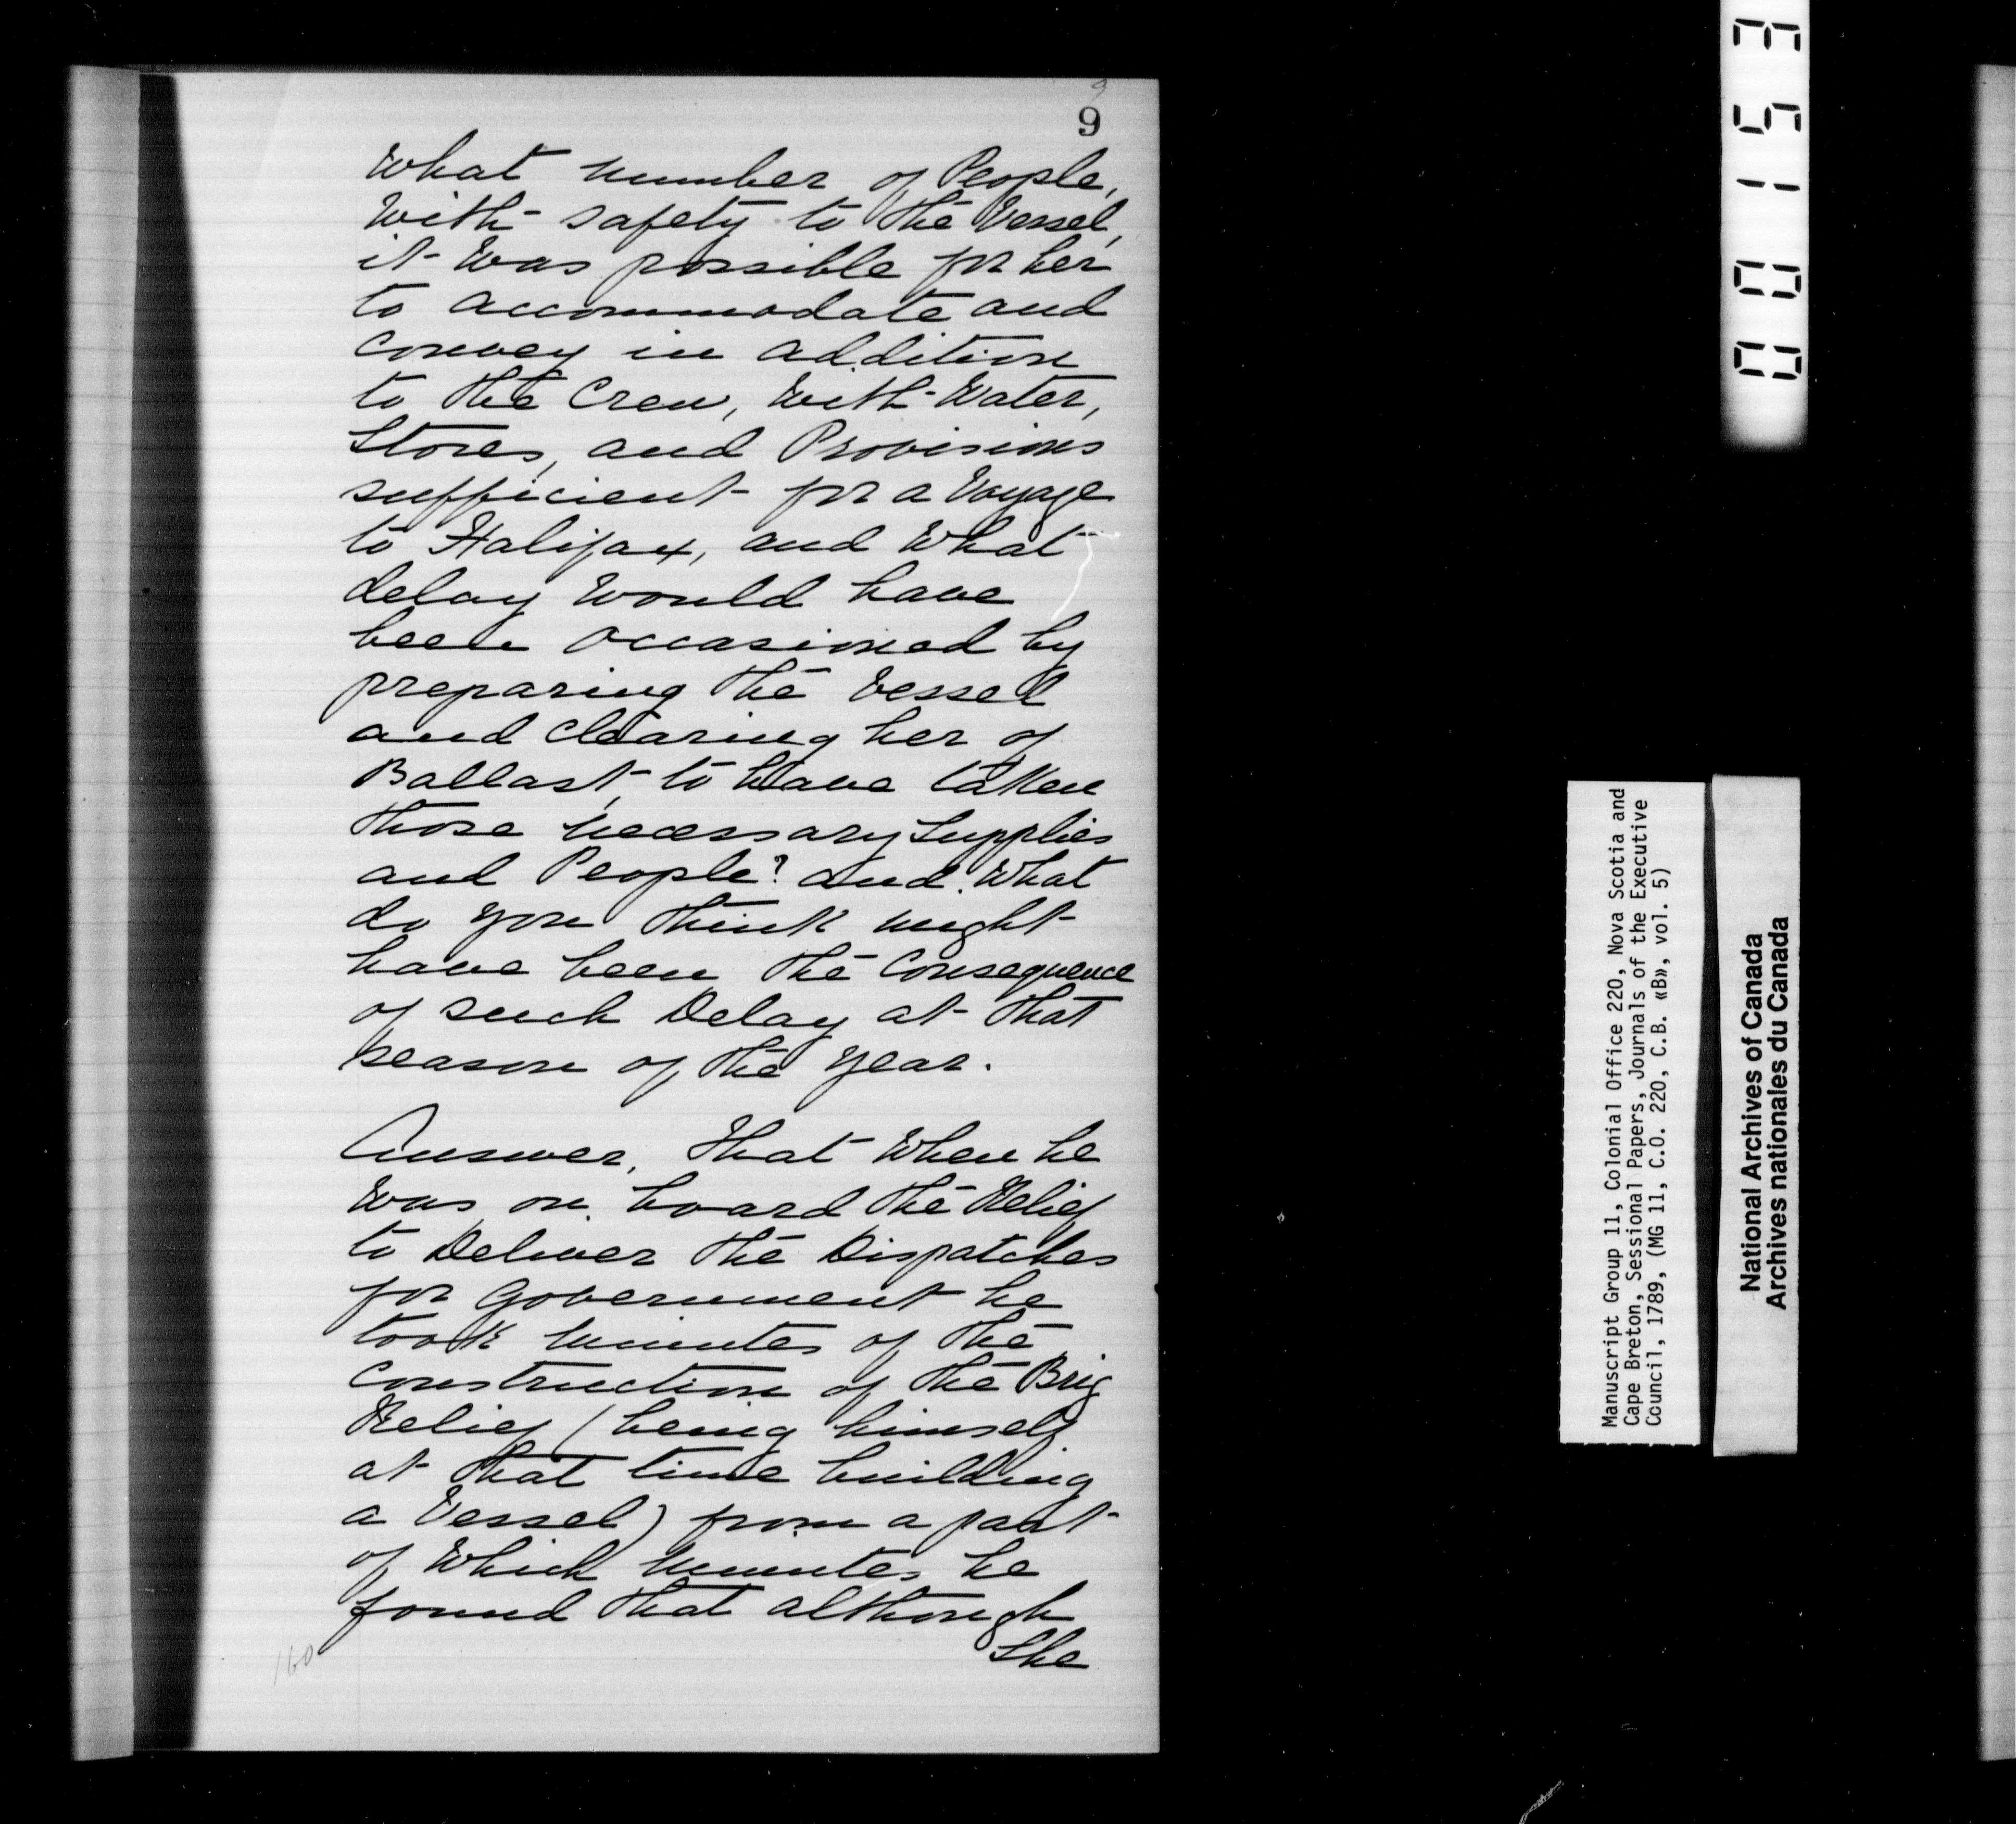 9
9
What number of People,
With safety to the Vessel,
it was possible for her
to accommodate and
convey in addition
to the Crew, with Water,
Stores, and Provisions
sufficient for a Voyage
to Halifax, and What
delay would have
been occasioned by
preparing the Vessel
and clearing her of
Ballast, to have taken
those necessary Supplies
and People? and What
do you think might
have been the Consequence
of such Delay at that
season of the year.
Answer, that When he
Was on board the Relief
to Deliver the Dispatches
for Government he
took minutes of the
Construction of the Brig
Relief (being himself
at that time building
a Vessel) from a part
of Which minutes he
found that although
She
160
00153
Manuscript Group 11, Colonial Office 220, Nova Scotia and
Cape Breton, Sessional Papers, Journals of the Executive
Council, 1789, (MG 11, C.O. 220, C.B. «B», vol. 5)
National Archives of Canada
Archives nationales du Canada